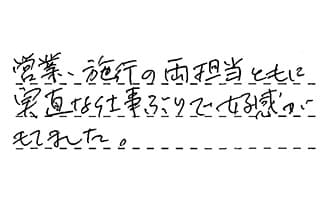 営業、施行の両担当ともに
実直な仕事ぶりで好感が
もてました。